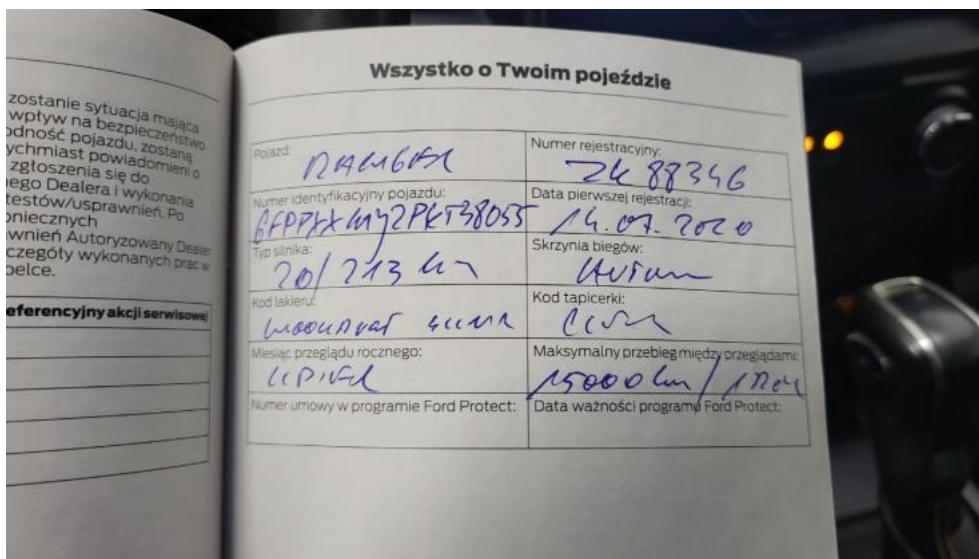 zostanie sytuacja mająca
wpływ na bezpieczeństwo
odność pojazdu, zostaną
ychmiast powiadomieni o
zgłoszenia się do
nego Dealera i wykonania
testów/usprawnień. Po
oniecznych
awnień Autoryzowany Dealer
zczegóły wykonanych prac w
belce.
eferencyjny akcji serwisowej
Wszystko o Twoim pojeździe
Pojazd:
RANGER
Numer rejestracyjny:
ZK 88346
Numer identyfikacyjny pojazdu:
Data pierwszej rejestracji:
14.07.2020
Typ silnika:
20/213 km
Skrzynia biegów:
Autom
Kod lakieru:
Kod tapicerki:
Miesiąc przeglądu rocznego:
LIPIEC
Maksymalny przebieg między przeglądami:
15000 km / 1 rok
Numer umowy w programie Ford Protect:
Data ważności programu Ford Protect: